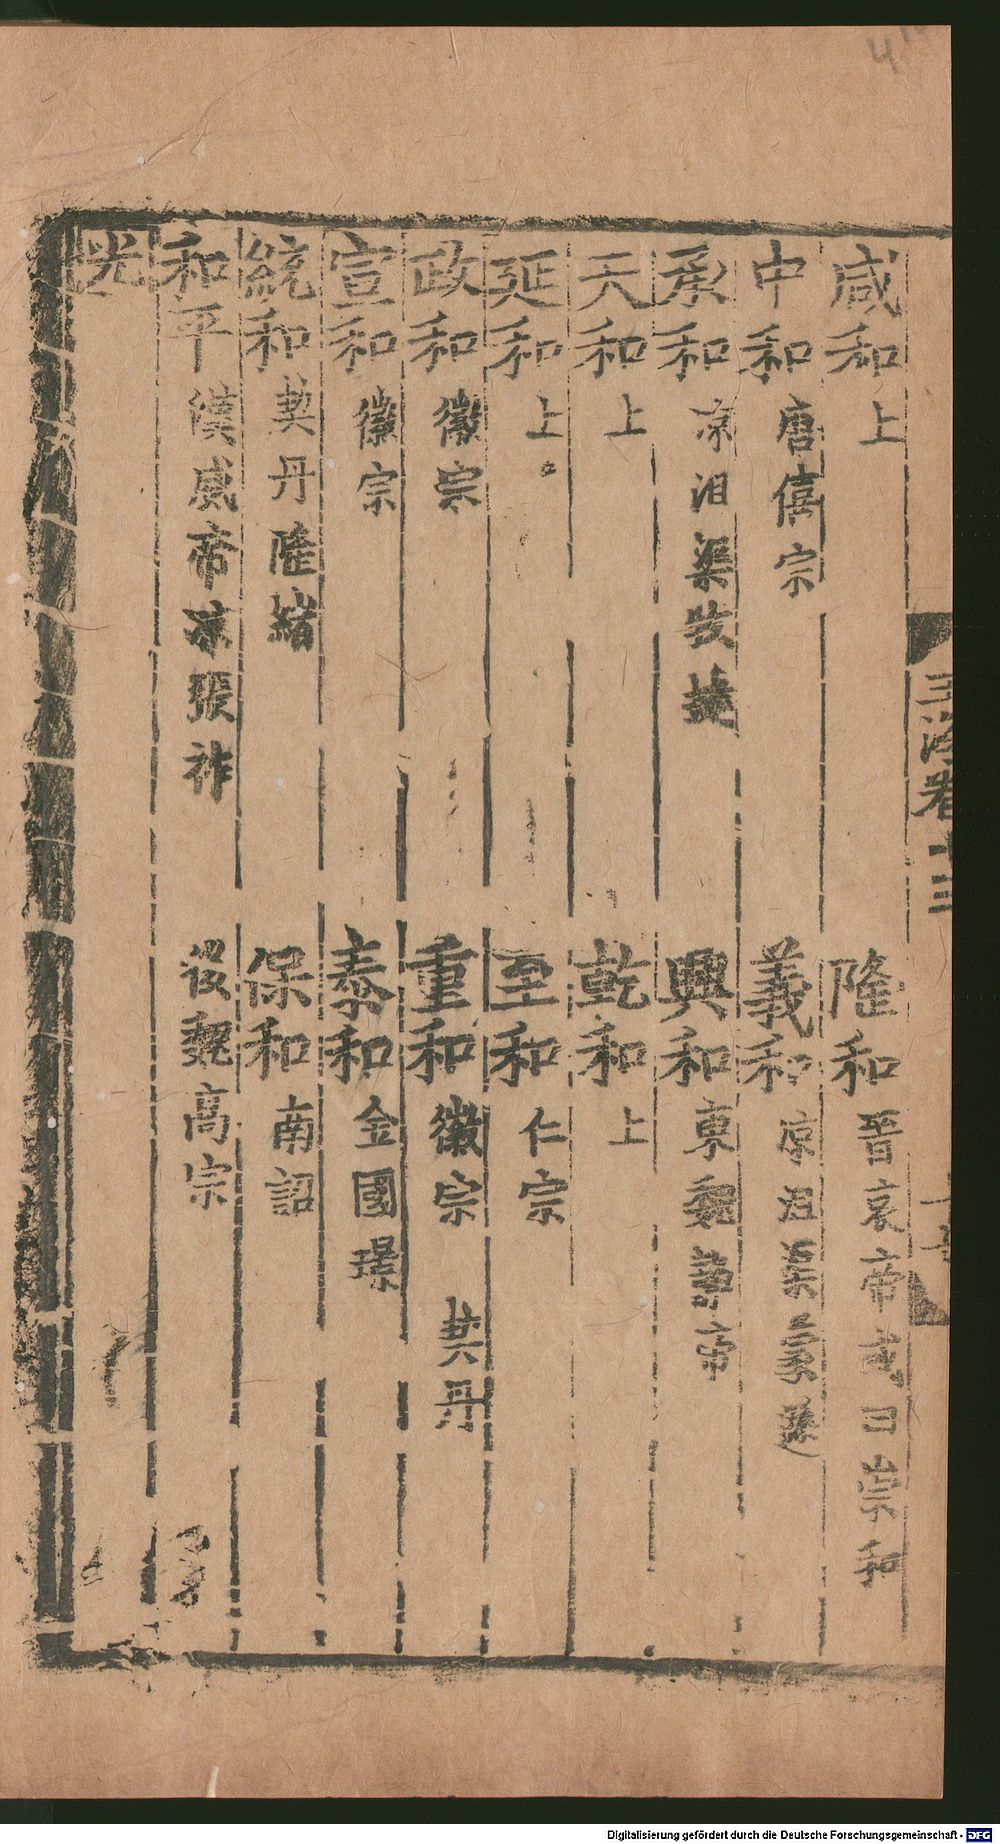 咸和上　隆和晉哀帝或曰崇和
中和唐僖宗　義和凉沮渠蒙遜
承和凉沮渠牧揵　興和東魏静帝
天和上　乾和上
延和上　至和仁宗
政和徽宗　重和徽宗　契丹
宣和徽宗　泰和金國璟
統和契丹隆緒　保和南詔
和平漢威帝凉張祚　後魏高宗
光
玉海卷十三
Digitalisierung gefördert durch die Deutsche Forschungsgemeinschaft - DFG